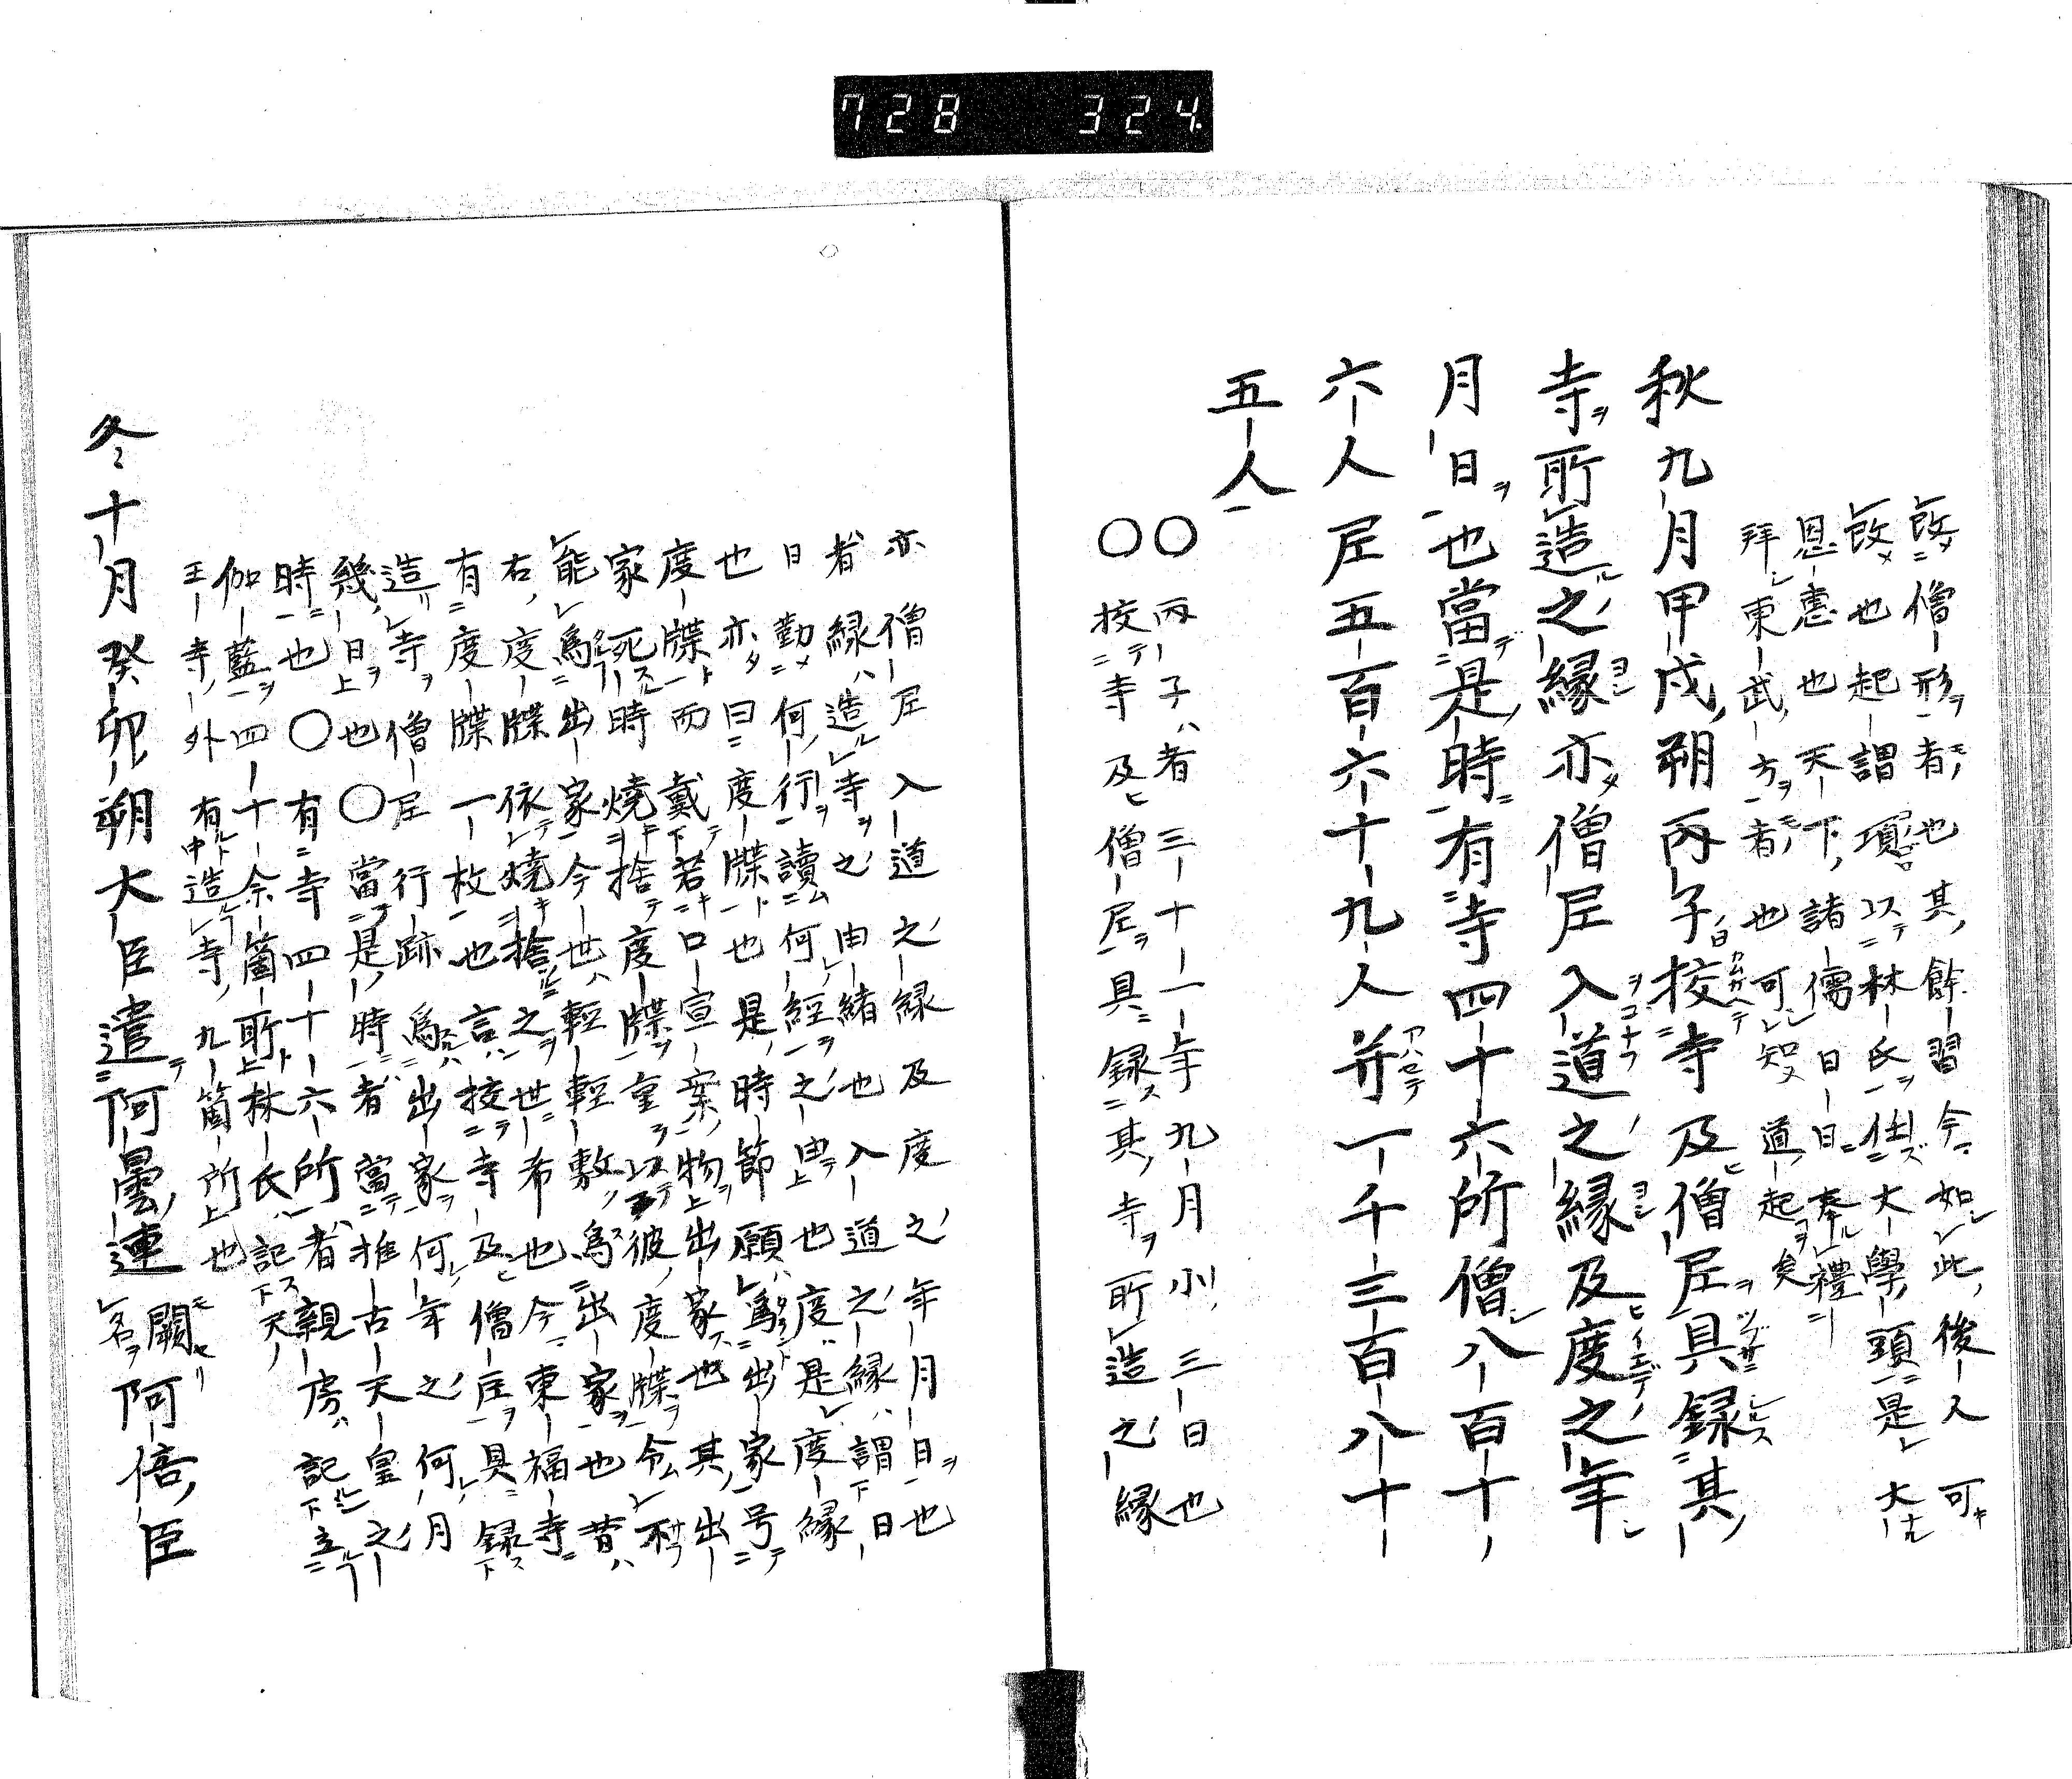 728 324
改僧形者也其餘習今如此後人可
改也起謂項以林氏任大學頭是大
恩恵也天下諸儒日日奉禮
拝東武方者也可知道起矣
秋九月甲戌朔丙子挍寺及僧尼具録其
寺所造之縁亦僧尼入道之縁及度之年
月日也當是時有寺四十六所僧八百十
六人尼五百六十九人并一千三百八十
五人
〇丙子者三十一年九月小三日也
〇挍寺及僧尼具録其寺所造之縁
亦僧尼入道之縁及度之年月日也
者縁造寺之由緒也入道之縁謂日
日勤何行讀何經之由也度是度縁
也亦曰度牒也是時節願爲出家号
度牒而戴若口宣案物出家也其出
家死時燒捨度牒重以彼度牒令不
能爲出家今世輕輕敷爲出家也昔
右度牒依燒捨之世希也今東福寺
有度牒一枚也言挍寺及僧尼具録
造寺僧尼行跡爲出家何年之何月
幾日也〇當是時者當推古天皇之
時也〇有寺四十六所者親房記立
伽藍四十余箇所林氏記天
王寺外有造寺九箇所也
冬十月癸卯朔大臣遣阿曇連闕名阿倍臣